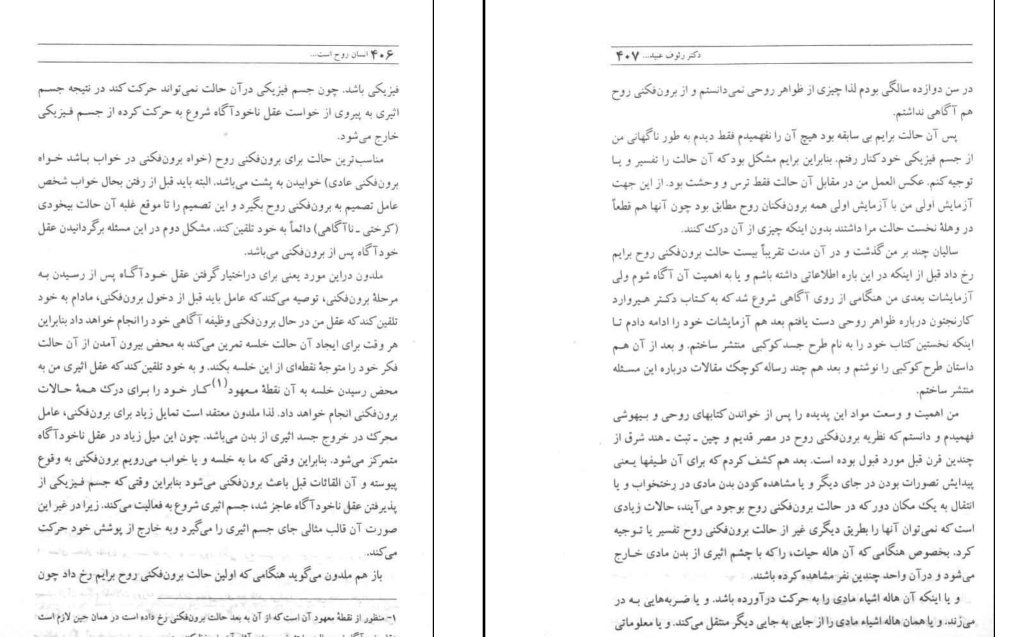 ۴۰۶ انسان روح است...
فیزیکی باشد. چون جسم فیزیکی درآن حالت نمی‌تواند حرکت کند در نتیجه جسم
اثیری به پیروی از خواست عقل ناخودآگاه شروع به حرکت کرده از جسم فیزیکی
خارج می‌شود.
مناسب‌ترین حالت برای برون‌فکنی روح (خواه برون‌فکنی در خواب باشد خواه
برون‌فکنی عادی) خوابیدن به پشت می‌باشد. البته باید قبل از رفتن بحال خواب شخص
عامل تصمیم به برون‌فکنی روح بگیرد و این تصمیم را تا موقع غلبه آن حالت بیخودی
(کرختی ـ ناآگاهی) دائماً به خود تلقین کند. مشکل دوم در این مسئله برگردانیدن عقل
خودآگاه پس از برون‌فکنی می‌باشد.
ملدون دراین مورد یعنی برای دراختیارگرفتن عقل خودآگاه پس از رسیدن به
مرحلهٔ برون‌فکنی، توصیه می‌کند که عامل باید قبل از دخول برون‌فکنی، مادام به خود
تلقین کند که عقل من در حال برون‌فکنی وظیفه آگاهی خود را انجام خواهد داد بنابراین
هر وقت برای ایجاد آن حالت خلسه تمرین می‌کند به محض بیرون آمدن از آن حالت
فکر خود را متوجهٔ نقطه‌ای از این خلسه بکند. و به خود تلقین کند که عقل اثیری من به
محض رسیدن خلسه به آن نقطهٔ معهود(۱) کار خود را برای درک همهٔ حالات
برون‌فکنی انجام خواهد داد. لذا ملدون معتقد است تمایل زیاد برای برون‌فکنی، عامل
محرک در خروج جسد اثیری از بدن می‌باشد. چون این میل زیاد در عقل ناخودآگاه
متمرکز می‌شود. بنابراین وقتی که ما به خلسه و یا خواب می‌رویم برون‌فکنی به وقوع
پیوسته و آن القائات قبل باعث برون‌فکنی می‌شود بنابراین وقتی که جسم فیزیکی از
پذیرفتن عقل ناخودآگاه عاجز شد، جسم اثیری شروع به فعالیت می‌کند. زیرا در غیر این
صورت آن قالب مثالی جای جسم اثیری را می‌گیرد وبه خارج از پوشش خود حرکت
می‌کند.
باز هم ملدون می‌گوید هنگامی که اولین حالت برون‌فکنی روح برایم رخ داد چون
۱- منظور از نقطهٔ معهود آن است که از آن به بعد حالت برون‌فکنی رخ داده است در همان حین لازم است
دکتر رئوف عبید... ۴۰۷
در سن دوازده سالگی بودم لذا چیزی از ظواهر روحی نمی‌دانستم و از برون‌فکنی روح
هم آگاهی نداشتم.
پس آن حالت برایم بی سابقه بود هیچ آن را نفهمیدم فقط دیدم به طور ناگهانی من
از جسم فیزیکی خود کنار رفتم. بنابراین برایم مشکل بود که آن حالت را تفسیر و یا
توجیه کنم. عکس العمل من در مقابل آن حالت فقط ترس و وحشت بود. از این جهت
آزمایش اولی من با آزمایش اولی همه برون‌فکنان روح مطابق بود چون آنها هم قطعاً
در وهلهٔ نخست حالت مرا داشتند بدون اینکه چیزی از آن درک کنند.
سالیان چند بر من گذشت و در آن مدت تقریباً بیست حالت برون‌فکنی روح برایم
رخ داد قبل از اینکه در این باره اطلاعاتی داشته باشم و یا به اهمیت آن آگاه شوم ولی
آزمایشات بعدی من هنگامی از روی آگاهی شروع شد که به کتاب دکتر هیروارد
کارنجتون درباره ظواهر روحی دست یافتم بعد هم آزمایشات خود را ادامه دادم تا
اینکه نخستین کتاب خود را به نام طرح جسد کوکبی منتشر ساختم. و بعد از آن هم
داستان طرح کوکبی را نوشتم و بعد هم چند رساله کوچک مقالات درباره این مسئله
منتشر ساختم.
من اهمیت و وسعت مواد این پدیده را پس از خواندن کتابهای روحی و بیهوشی
فهمیدم و دانستم که نظریه برون‌فکنی روح در مصر قدیم و چین ـ تبت ـ هند شرق از
چندین قرن قبل مورد قبول بوده است. بعد هم کشف کردم که برای آن طیفها یعنی
پیدایش تصورات بودن در جای دیگر و یا مشاهده کودن بدن مادی در رختخواب و یا
انتقال به یک مکان دور که در حالت برون‌فکنی روح بوجود می‌آیند، حالات زیادی
است که نمی‌توان آنها را بطریق دیگری غیر از حالت برون‌فکنی روح تفسیر یا توجیه
کرد. بخصوص هنگامی که آن هاله حیات، را که با چشم اثیری از بدن مادی خارج
می‌شود و درآن واحد چندین نفر مشاهده کرده باشند.
و یا اینکه آن هاله اشیاء مادی را به حرکت درآورده باشد. و یا ضربه‌هایی به در
می‌زند. و یا همان هاله اشیاء مادی را از جایی به جایی دیگر منتقل می‌کند. و یا معلوماتی